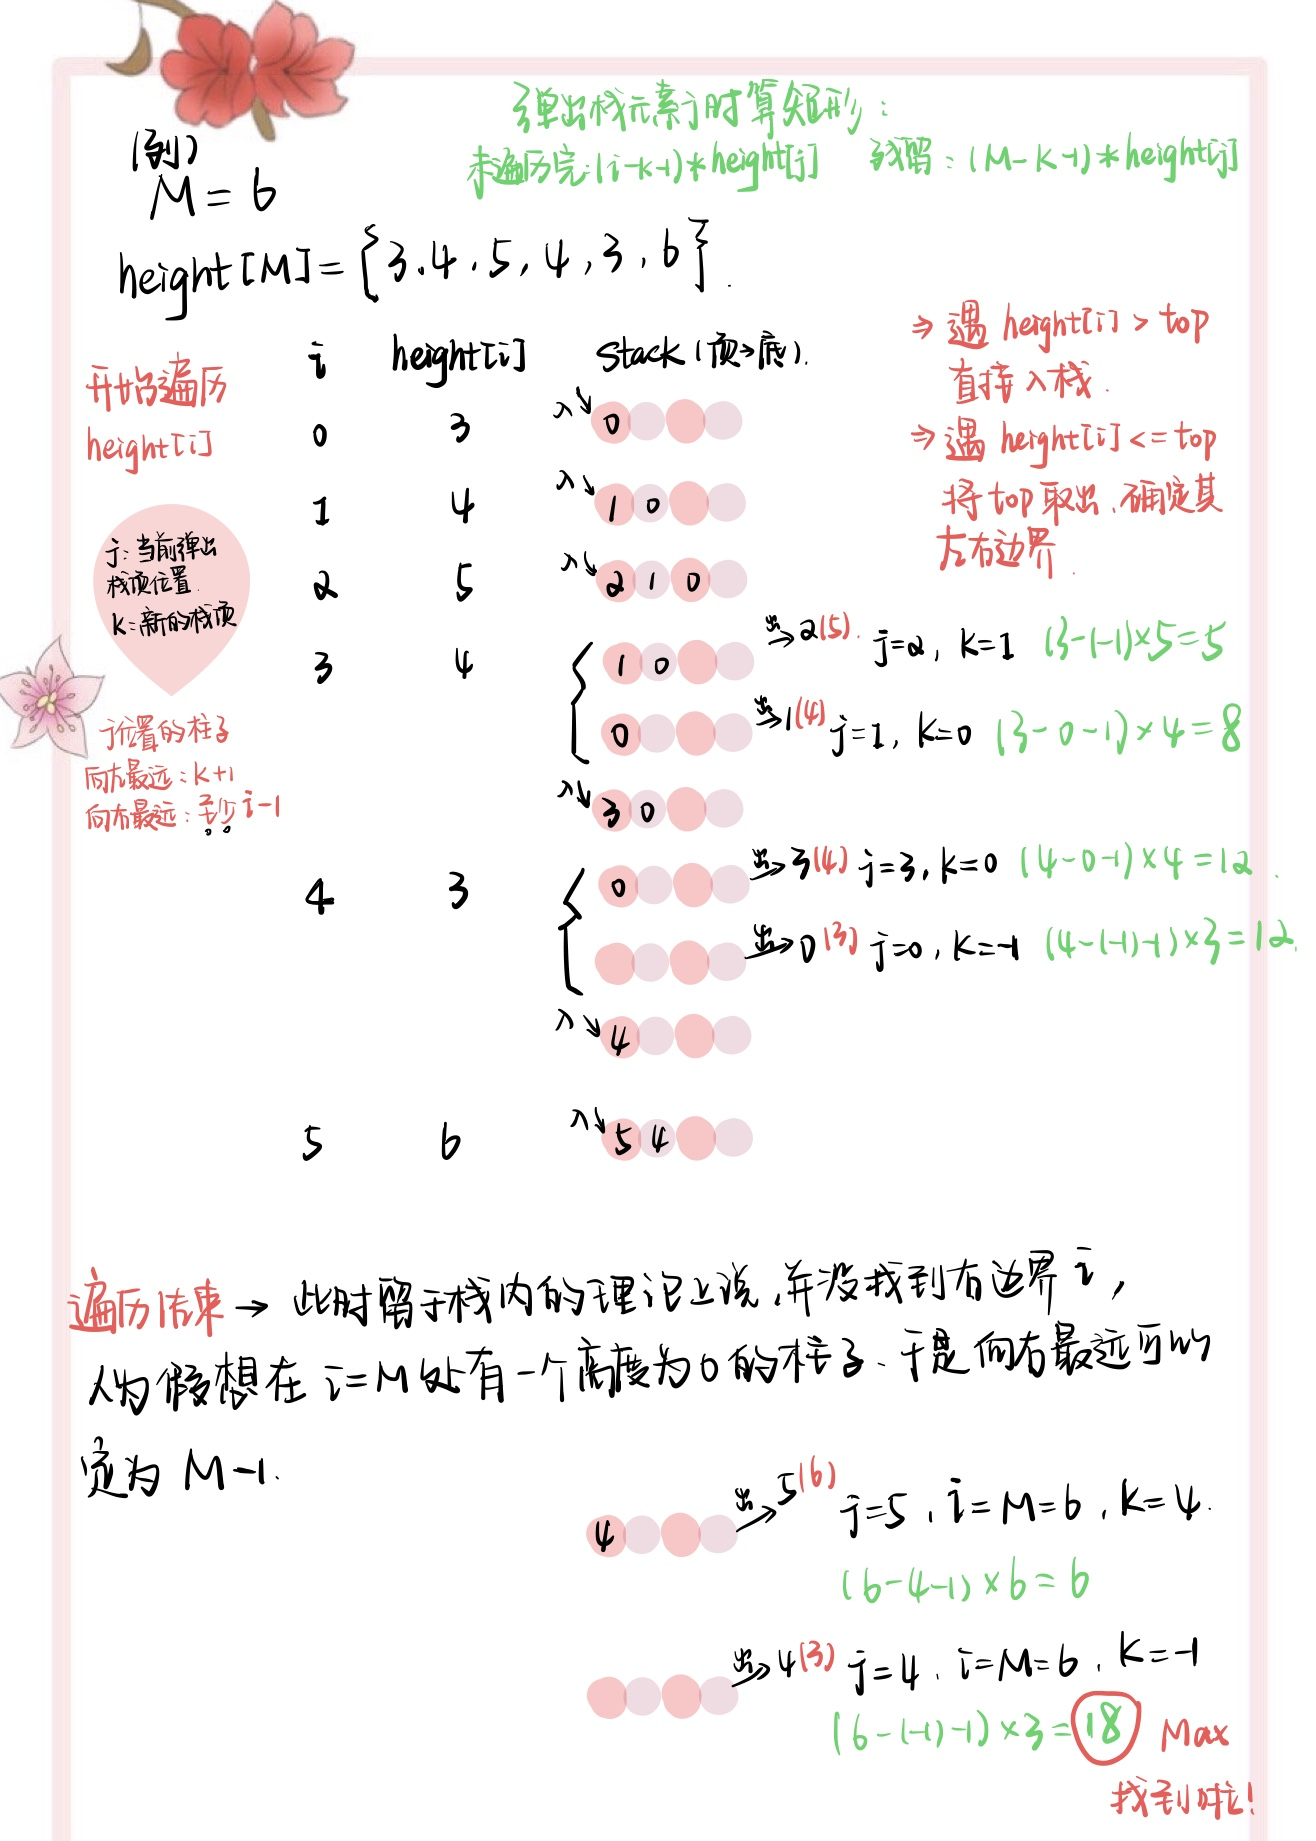 弹出栈元素j时算矩形：
未遍历完:(i-k-1)*height[j] 残留：(M-K-1)*height[j]
(例)
M=6
height[M]={3.4.5,4,3,6}.
i height[i] Stack(顶→底).
开始遍历
height[i]
⇒ 遇 height[i] > top
直接入栈.
⇒ 遇 height[i] <= top
将top取出,确定其
左右边界.
0 3 入 0
1 4 入 1 0
2 5 入 2 1 0
j:当前弹出
栈顶位置.
K:新的栈顶
3 4 1 0 出→2(5). j=2, K=1 (3-1-1)×5=5
0 出→1(4) j=1, K=0 (3-0-1)×4=8
入 3 0
j位置的柱子
向左最远：K+1
向右最远： i-1
4 3 0 出→3(4) j=3,K=0 (4-0-1)×4=12.
出→0(3) j=0,K=-1 (4-(-1)-1)×3=12.
入 4
5 6 入 5 4
遍历结束→ 此时留于栈内的理论上说,并没找到右边界 i,
人为假想在 i=M处有一个高度为0的柱子、于是向右最远可以
定为 M-1.
4 出→5(6) j=5,i=M=6,K=4.
(6-4-1)×6=6
出→4(3) j=4.i=M=6,K=-1
(6-(-1)-1)×3=18 Max
找到啦!